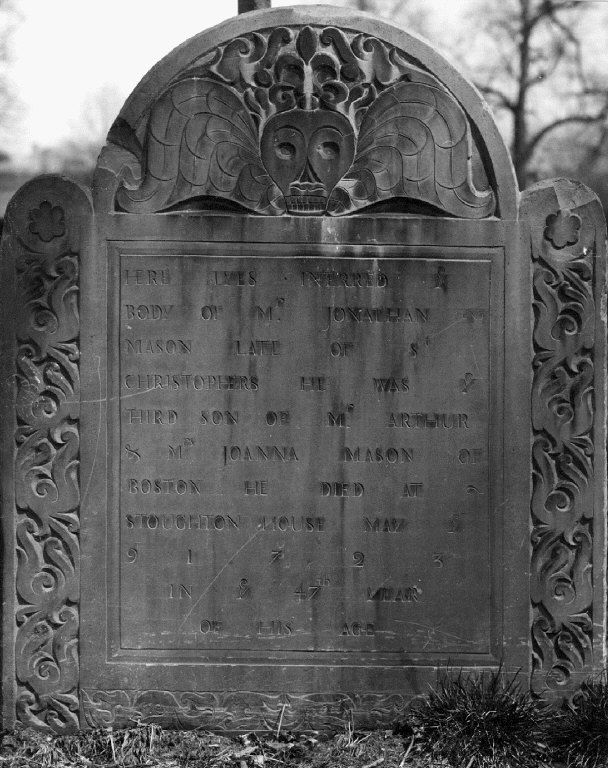 HERE LYES INTERRED Yᵉ
BODY OF Mʳ JONATHAN
MASON LATE OF Sᵗ
CHRISTOPHERS HE WAS Yᵉ
THIRD SON OF Mʳ ARTHUR
& Mʳˢ JOANNA MASON OF
BOSTON HE DIED AT
STOUGHTON HOUSE MAY Yᵉ
9 1 7 2 3
IN Yᵉ 47ᵗʰ YEAR
OF HIS AGE